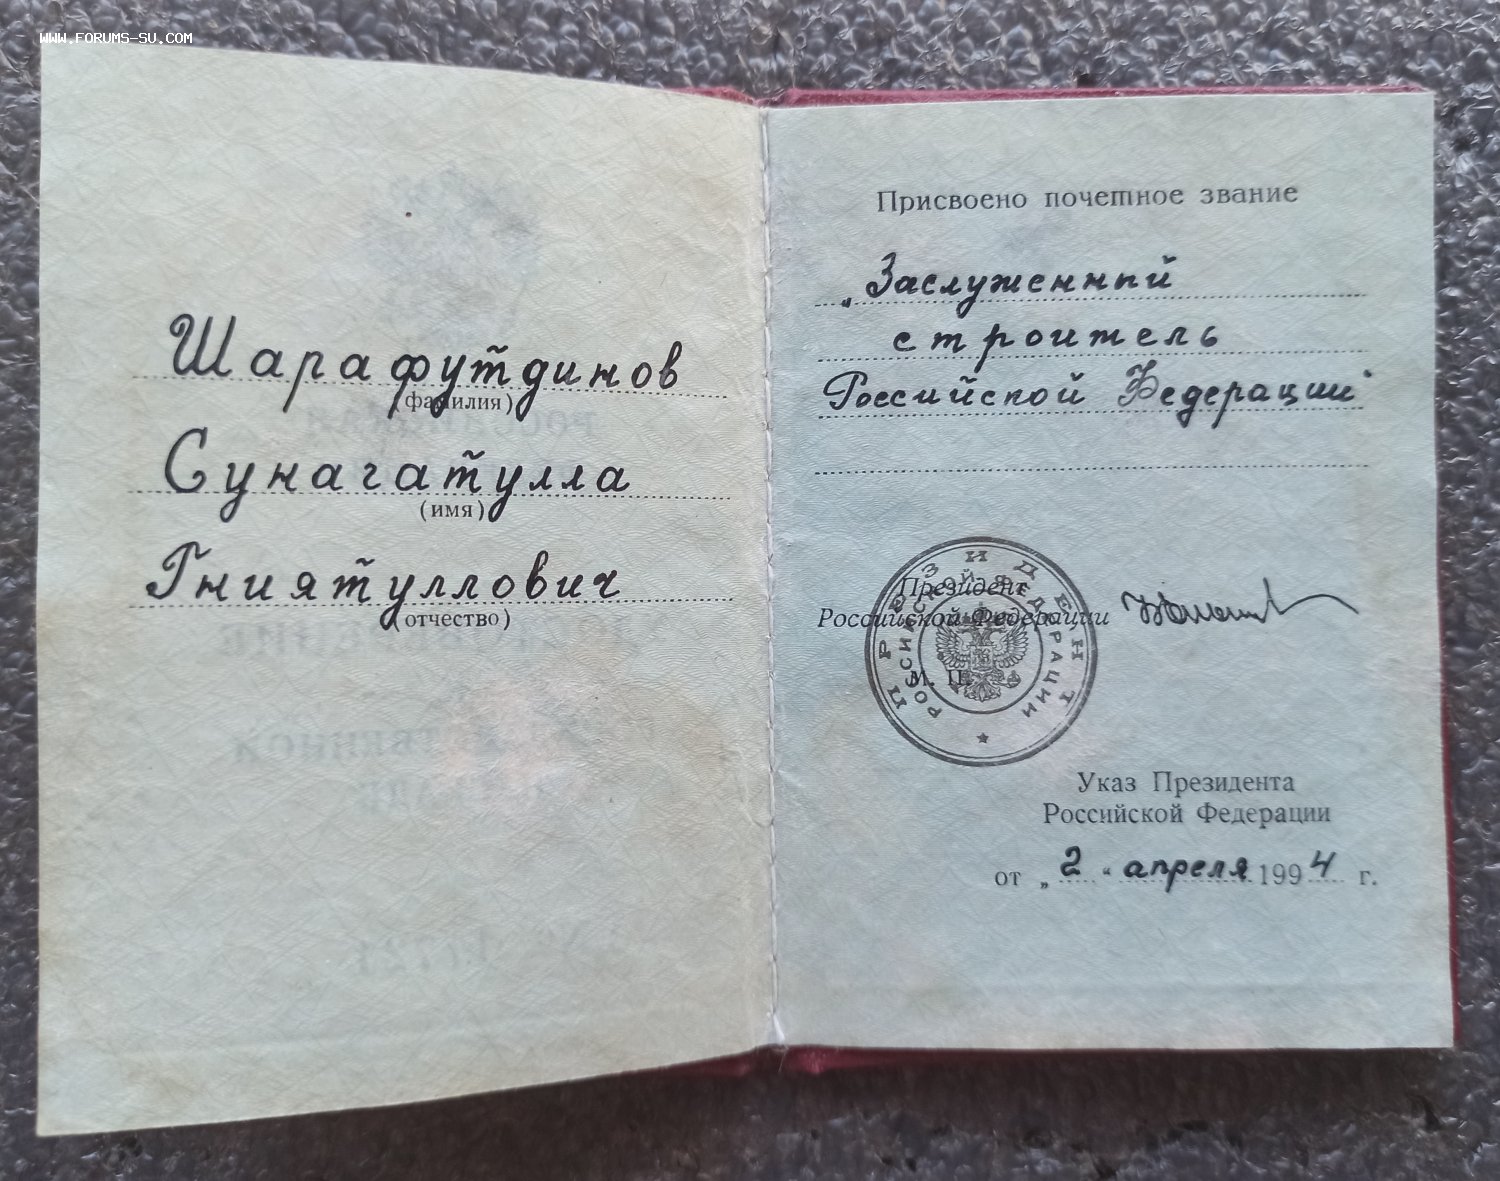 WWW.FORUMS-SU.COM
Шарафутдинов
(фамилия)
Сунагатулла
(имя)
Гниятуллович
(отчество)
Присвоено почетное звание
„Заслуженный
строитель
Российской Федерации“
Президент
Российской Федерации
М. П.
ПРЕЗИДЕНТ
РОССИЙСКОЙ ФЕДЕРАЦИИ
Указ Президента
Российской Федерации
от „2“ апреля 1994 г.